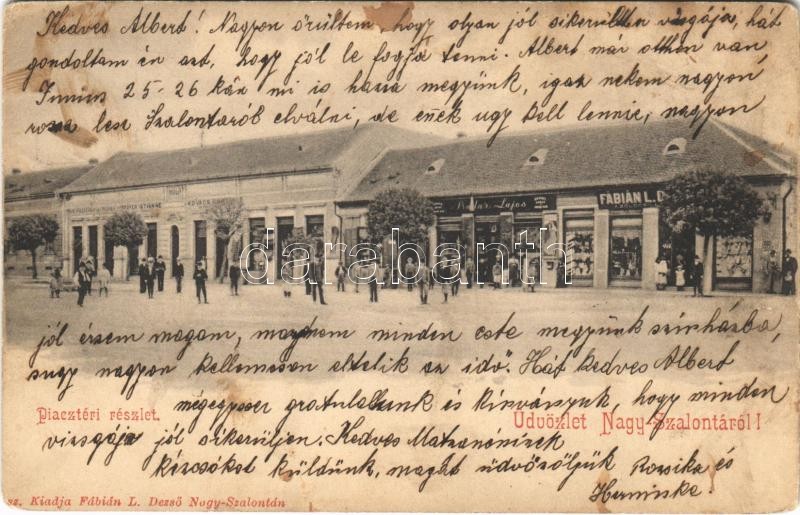 Kedves Albert! Nagyon örültem, hogy olyan jól sikerültek vizsgája, hát
gondoltam én azt, hogy jól le fogja tenni. Albert már otthon van,
Junius 25-26 kán mi is haza megyünk, igaz nekem nagyon
rossz lesz Szalontaról elválni, de ennek ugy kell lennie, nagyon
FÁBIÁN L. D
Lajos
darabanth.com
jól érzem magam, majdnem minden este megyünk szinházba,
s ugy nagyon kellemesen eltelik az idő. Hát kedves Albert
Piacztéri részlet.
mégegyszer gratulálunk és kivánjuk, hogy minden
Üdvözlet Nagy-Szalontáról!
vizsgája jól sikerüljen. Kedves
kézcsókot küldünk, magát üdvözöljük Rozsika és
Herminke.
sz. Kiadja Fábián L. Dezső Nagy-Szalontán